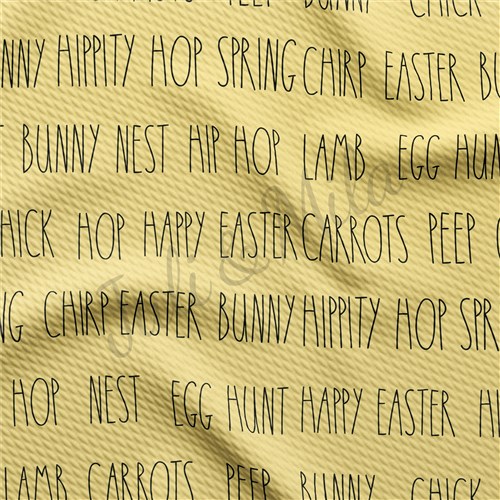 PEEP BUNNY CHICK
NNY HIPPITY HOP SPRING CHIRP EASTER BU
BUNNY NEST HIP HOP LAMB EGG HUN
CHICK HOP HAPPY EASTER CARROTS PEEP
NG CHIRP EASTER BUNNY HIPPITY HOP SPR
HOP NEST EGG HUNT HAPPY EASTER HI
LAMB CARROTS PEEP BUNNY CHICK